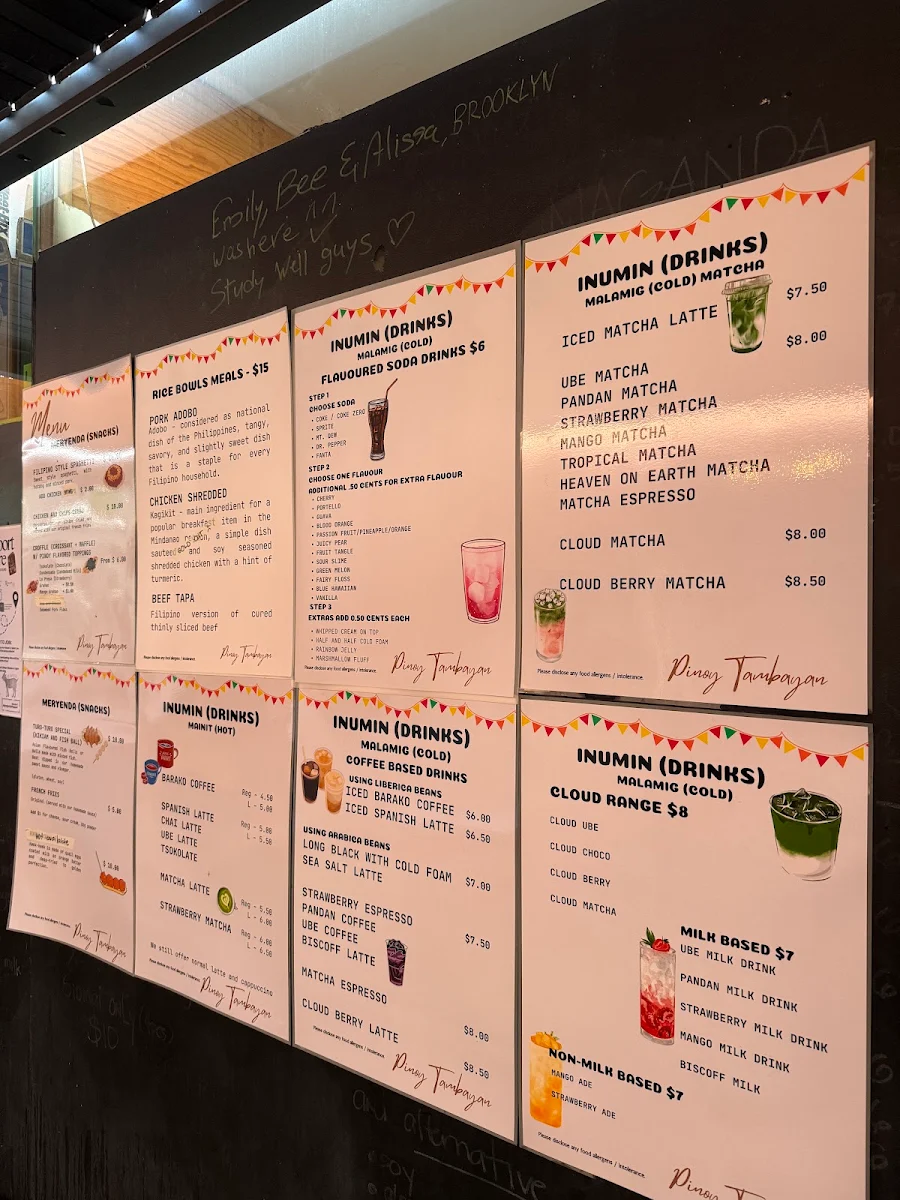 Emily, Bee & Alissa, BROOKLYN
was here in
Study well guys ♡
MAGANDA
Menu
MERYENDA (SNACKS)
FILIPINO STYLE SPAGHETTI
RICE BOWLS MEALS - $15
PORK ADOBO
Adobo - considered as national
dish of the Philippines, tangy,
savory, and slightly sweet dish
that is a staple for every
Filipino household.
CHICKEN SHREDDED
Kagikit - main ingredient for a
popular breakfast item in the
Mindanao region, a simple dish
sauteed and soy seasoned
shredded chicken with a hint of
turmeric.
BEEF TAPA
Filipino version of cured
thinly sliced beef
Pinoy Tambayan
INUMIN (DRINKS)
MALAMIG (COLD)
FLAVOURED SODA DRINKS $6
STEP 1
CHOOSE SODA
• COKE / COKE ZERO
• SPRITE
• MT. DEW
• DR. PEPPER
• FANTA
STEP 2
CHOOSE ONE FLAVOUR
ADDITIONAL .50 CENTS FOR EXTRA FLAVOUR
• CHERRY
• PORTELLO
• GUAVA
• BLOOD ORANGE
• PASSION FRUIT/PINEAPPLE/ORANGE
• JUICY PEAR
• FRUIT TANGLE
• SOUR SLIME
• GREEN MELON
• FAIRY FLOSS
• BLUE HAWAIIAN
• VANILLA
STEP 3
EXTRAS ADD 0.50 CENTS EACH
• WHIPPED CREAM ON TOP
• HALF AND HALF COLD FOAM
• RAINBOW JELLY
• MARSHMALLOW FLUFF
Please disclose any food allergens / intolerance.
Pinoy Tambayan
INUMIN (DRINKS)
MALAMIG (COLD) MATCHA
ICED MATCHA LATTE $7.50
$8.00
UBE MATCHA
PANDAN MATCHA
STRAWBERRY MATCHA
MANGO MATCHA
TROPICAL MATCHA
HEAVEN ON EARTH MATCHA
MATCHA ESPRESSO
CLOUD MATCHA $8.00
CLOUD BERRY MATCHA $8.50
Please disclose any food allergens / intolerance.
Pinoy Tambayan
MERYENDA (SNACKS)
TURO-TURO SPECIAL
(KIKIAM AND FISH BALL)
$ 10.00
FRENCH FRIES
Pinoy Tambayan
INUMIN (DRINKS)
MAINIT (HOT)
BARAKO COFFEE
Reg - 4.50
L - 5.00
SPANISH LATTE
CHAI LATTE
UBE LATTE
TSOKOLATE
Reg - 5.00
MATCHA LATTE
Reg - 5.50
L - 6.00
STRAWBERRY MATCHA
Reg - 6.00
L - 6.50
We still offer normal latte and cappuccino
Pinoy Tambayan
INUMIN (DRINKS)
MALAMIG (COLD)
COFFEE BASED DRINKS
USING LIBERICA BEANS
ICED BARAKO COFFEE $6.00
ICED SPANISH LATTE $6.50
USING ARABICA BEANS
LONG BLACK WITH COLD FOAM
SEA SALT LATTE $7.00
STRAWBERRY ESPRESSO
PANDAN COFFEE
UBE COFFEE $7.50
BISCOFF LATTE
MATCHA ESPRESSO
CLOUD BERRY LATTE $8.00
$8.50
Please disclose any food allergens / intolerance.
Pinoy Tambayan
INUMIN (DRINKS)
MALAMIG (COLD)
CLOUD RANGE $8
CLOUD UBE
CLOUD CHOCO
CLOUD BERRY
CLOUD MATCHA
MILK BASED $7
UBE MILK DRINK
PANDAN MILK DRINK
STRAWBERRY MILK DRINK
MANGO MILK DRINK
BISCOFF MILK
NON-MILK BASED $7
MANGO ADE
STRAWBERRY ADE
Please disclose any food allergens / intolerance.
Pinoy
alternative
soy